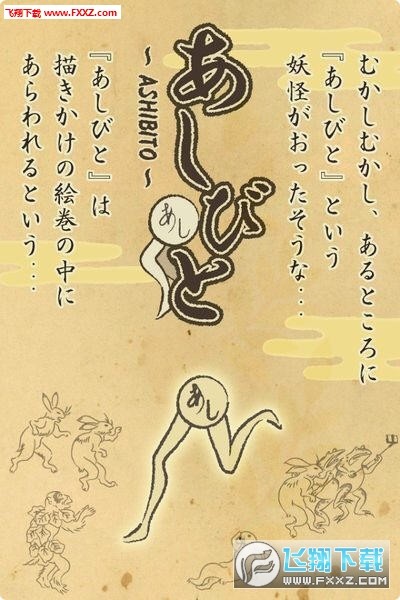 飞翔下载
WWW.FXXZ.COM
むかしむかし、あるところに
『あしびと』という
妖怪がおったそうな‥‥
あしびと
～ ASHIBITO ～
あし
『あしびと』は
描きかけの絵巻の中に
あらわれるという‥‥
あし
飞翔下载
WWW.FXXZ.COM